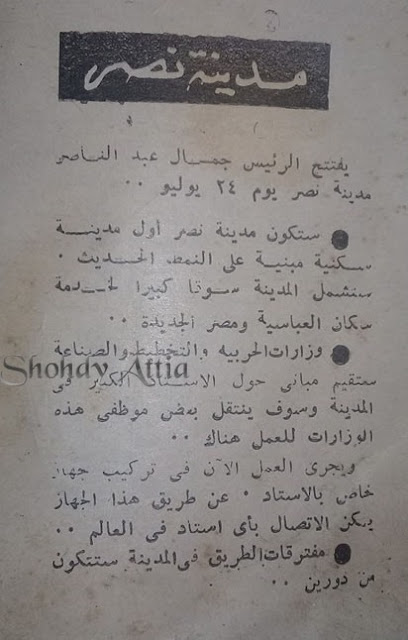 مدينة نصر
يفتتح الرئيس جمال عبد الناصر
مدينة نصر يوم ٢٤ يوليو ٠٠
● ستكون مدينة نصر أول مدينة
سكنية مبنية على النمط الحديث ٠
ستشمل المدينة سوقا كبيرا لخدمة
سكان العباسية ومصر الجديدة ٠٠
● وزارات الحربيه والتخطيط والصناعة
ستقيم مبانى حول الاستاد الكبير فى
المدينة وسوف ينتقل بعض موظفى هذه
الوزارات للعمل هناك ٠٠
ويجرى العمل الآن فى تركيب جهاز
خاص بالاستاد ٠ عن طريق هذا الجهاز
يمكن الاتصال بأى استاد فى العالم ٠٠
● مفترقات الطريق فى المدينة ستتكون
من دورين ٠٠
Shohdy Attia